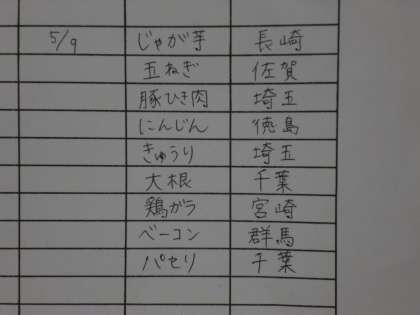 5/9 じゃが芋 長崎
玉ねぎ 佐賀
豚ひき肉 埼玉
にんじん 徳島
きゅうり 埼玉
大根 千葉
鶏ガラ 宮崎
ベーコン 群馬
パセリ 千葉